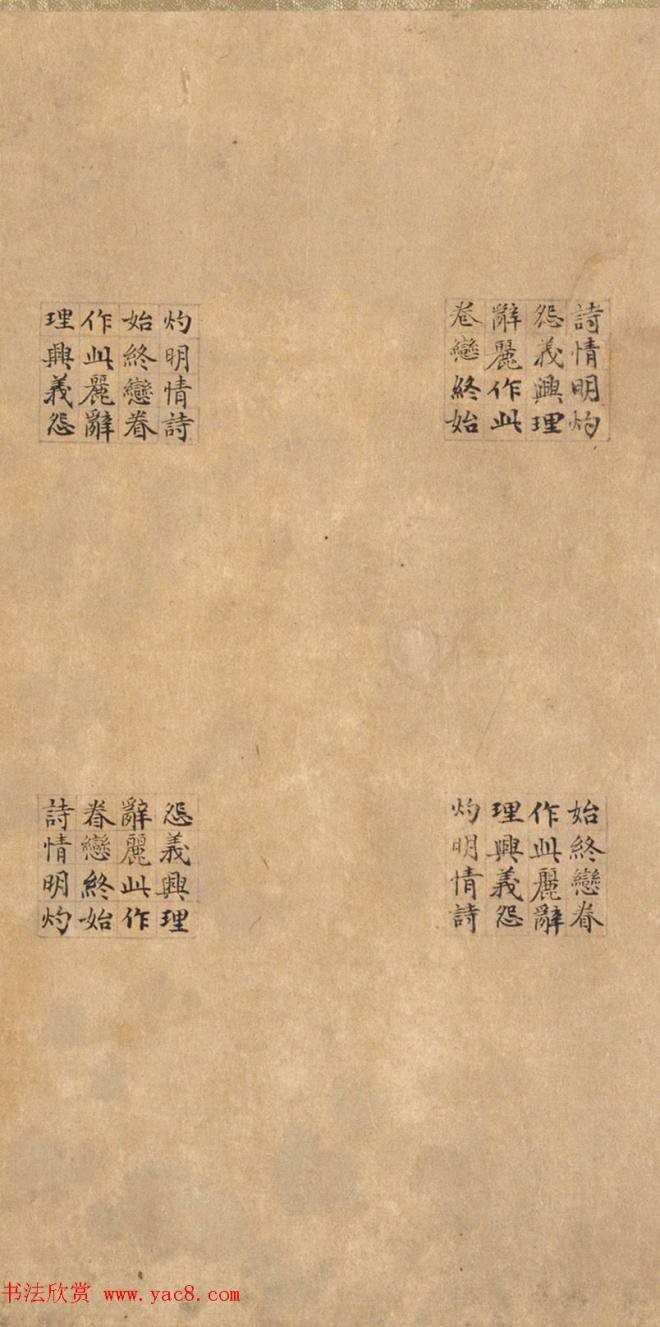 詩情明灼
怨義興理
辭麗作此
眷戀終始
灼明情詩
始終戀眷
作此麗辭
理興義怨
始終戀眷
作此麗辭
理興義怨
灼明情詩
怨義興理
辭麗此作
眷戀終始
詩情明灼
书法欣赏 www.yac8.com